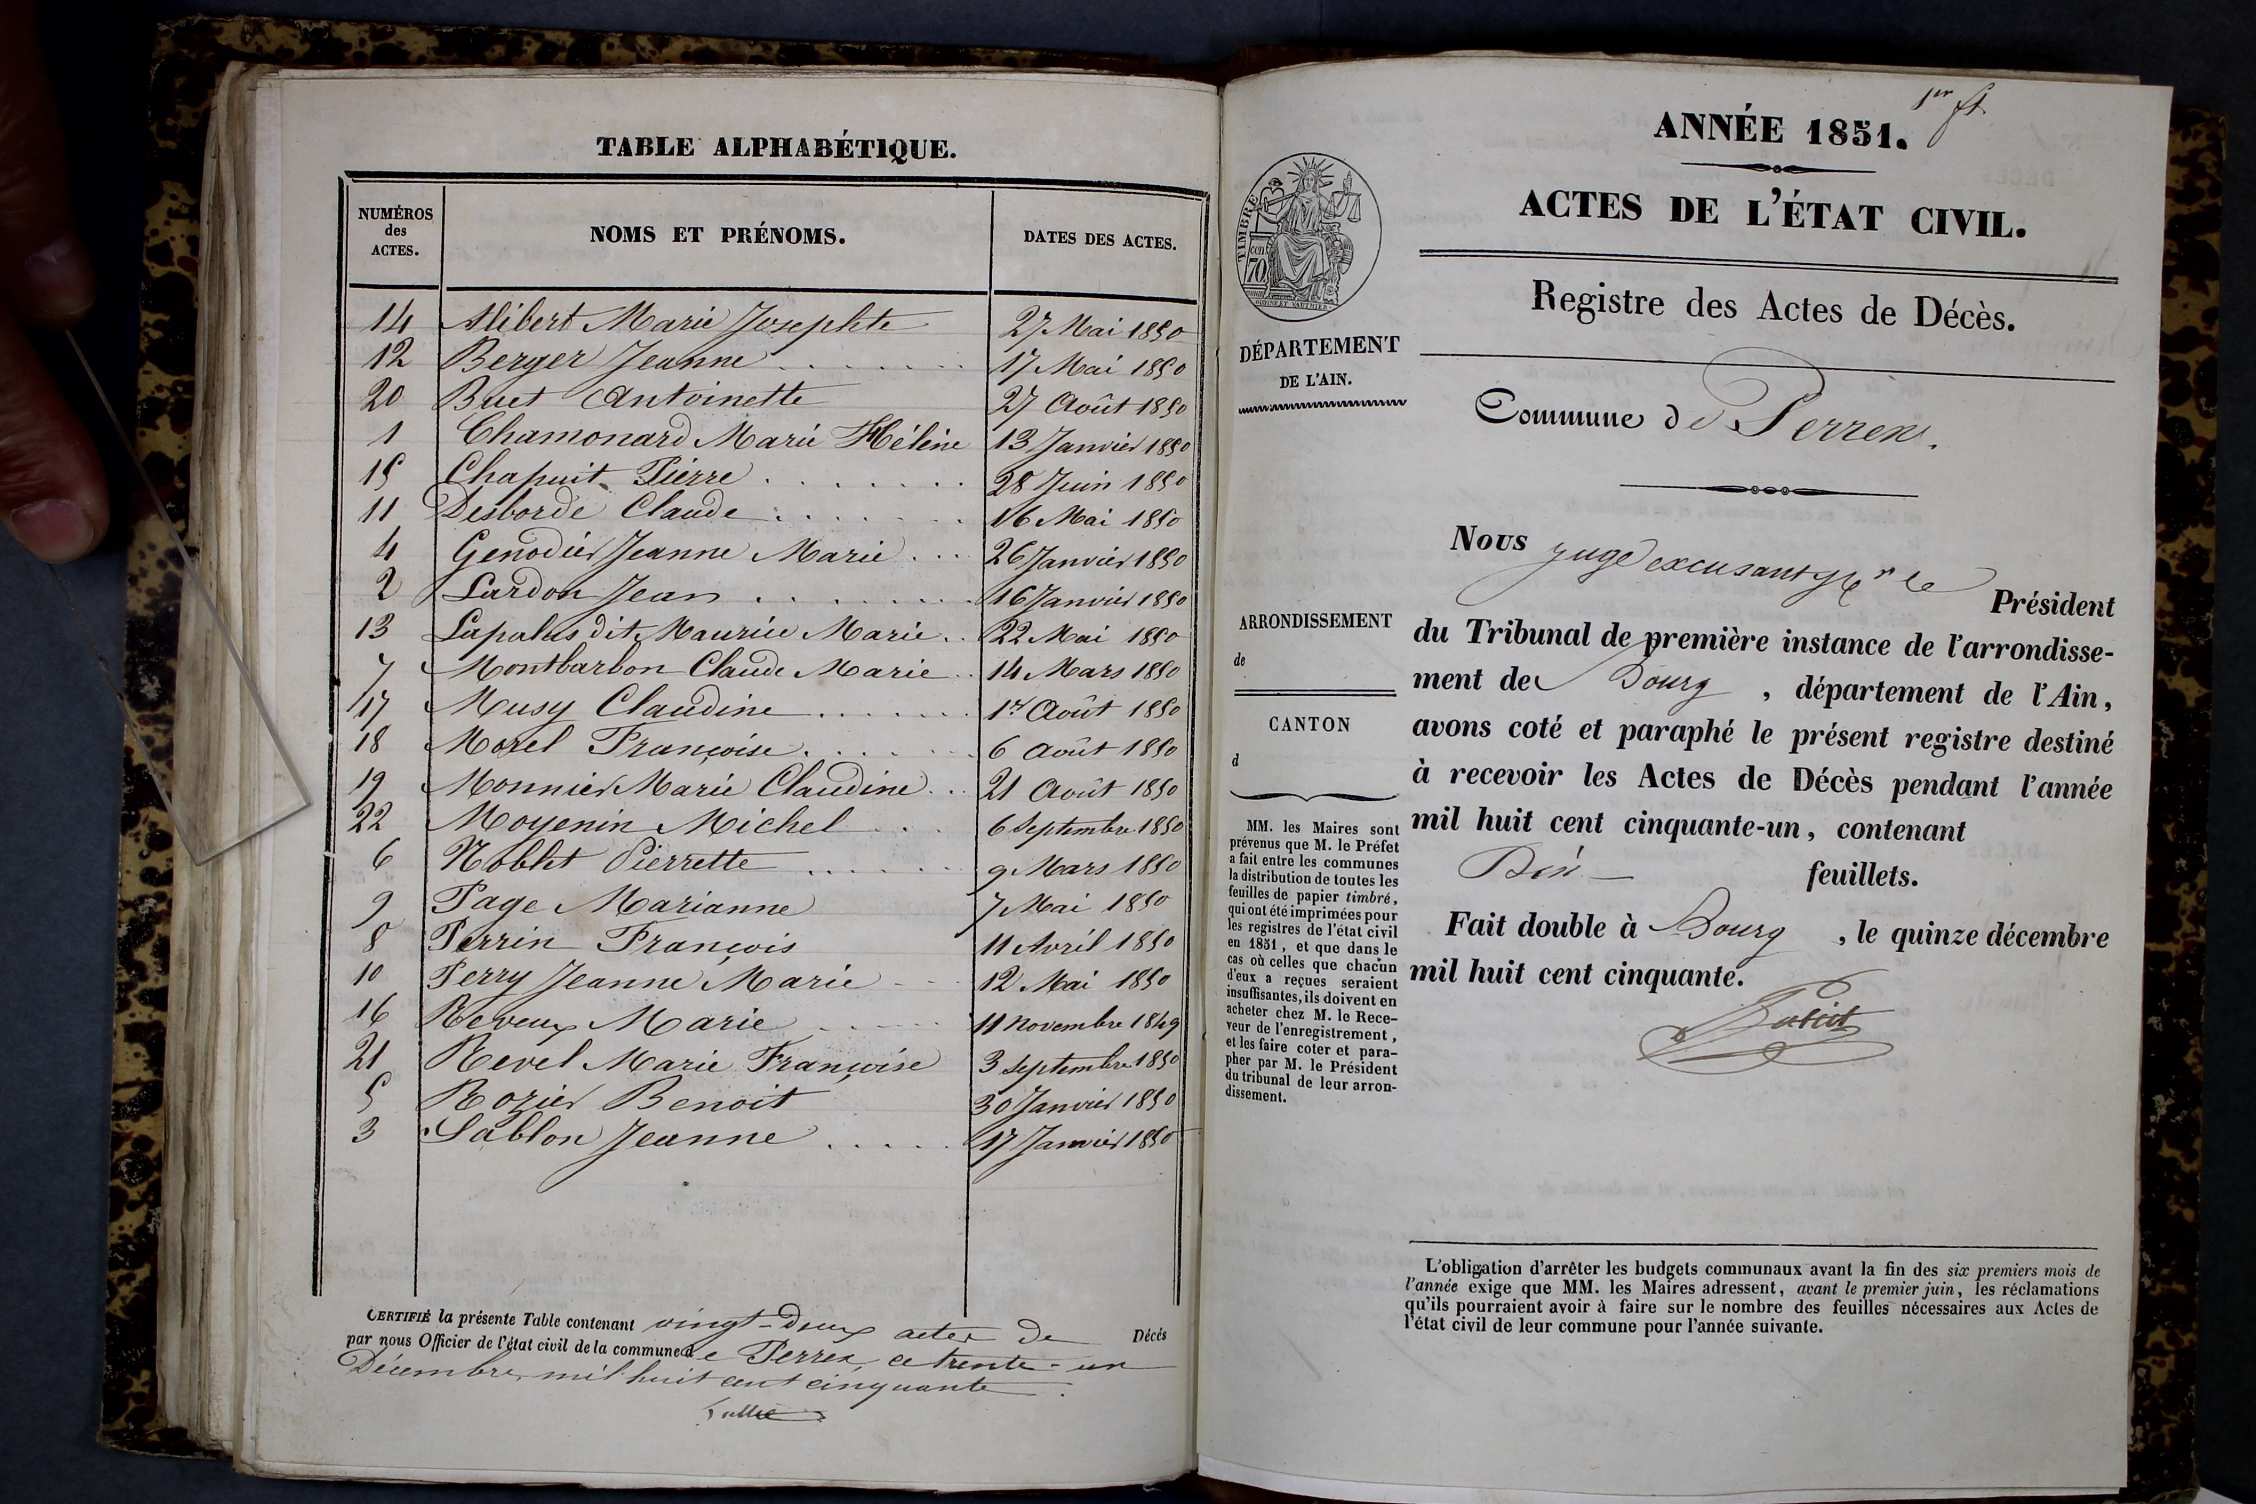 TABLE ALPHABÉTIQUE.
NUMÉROS des ACTES. NOMS ET PRÉNOMS. DATES DES ACTES.
14 Alibert Marie Josephte 27 Mai 1850
12 Berger Jeanne 17 Mai 1850
20 Buet Antoinette 27 Août 1850
1 Chamonard Marie Hélène 13 Janvier 1850
15 Chapuit Pierre 28 Juin 1850
11 Desborde Claude 16 Mai 1850
4 Genodier Jeanne Marie 26 Janvier 1850
2 Lardon Jean 16 Janvier 1850
13 Lapalus dit Maurice Marie 22 Mai 1850
7 Montbarbon Claude Marie 14 Mars 1850
17 Musy Claudine 1er Août 1850
18 Morel Françoise 6 Août 1850
19 Monnier Marie Claudine 21 Août 1850
22 Moyenin Michel 6 Septembre 1850
6 Noblet Pierrette 9 Mars 1850
9 Page Marianne 7 Mai 1850
8 Perrin François 11 Avril 1850
10 Perry Jeanne Marie 12 Mai 1850
16 Reveux Marie 11 Novembre 1849
21 Revel Marie Françoise 3 Septembre 1850
5 Rozier Benoit 30 Janvier 1850
3 Sablon Jeanne 17 Janvier 1850
CERTIFIÉ la présente Table contenant vingt-deux actes de Décés
par nous Officier de l'état civil de la commune de Perrex, ce trente-un
Décembre mil huit cent cinquante.
1er ft.
ANNÉE 1851.
ACTES DE L'ÉTAT CIVIL.
Registre des Actes de Décès.
TIMBRE
70
DÉPARTEMENT
DE L'AIN.
Commune de Perrex.
ARRONDISSEMENT
de
CANTON
d
MM. les Maires sont
prévenus que M. le Préfet
a fait entre les communes
la distribution de toutes les
feuilles de papier timbré,
qui ont été imprimées pour
les registres de l'état civil
en 1851, et que dans le
cas où celles que chacun
d'eux a reçues seraient
insuffisantes, ils doivent en
acheter chez M. le Rece-
veur de l'enregistrement,
et les faire coter et para-
pher par M. le Président
du tribunal de leur arron-
dissement.
Nous juge excusant Mr le Président
du Tribunal de première instance de l'arrondisse-
ment de Bourg, département de l'Ain,
avons coté et paraphé le présent registre destiné
à recevoir les Actes de Décès pendant l'année
mil huit cent cinquante-un, contenant
feuillets.
Fait double à Bourg, le quinze décembre
mil huit cent cinquante.
L'obligation d'arrêter les budgets communaux avant la fin des six premiers mois de
l'année exige que MM. les Maires adressent, avant le premier juin, les réclamations
qu'ils pourraient avoir à faire sur le nombre des feuilles nécessaires aux Actes de
l'état civil de leur commune pour l'année suivante.